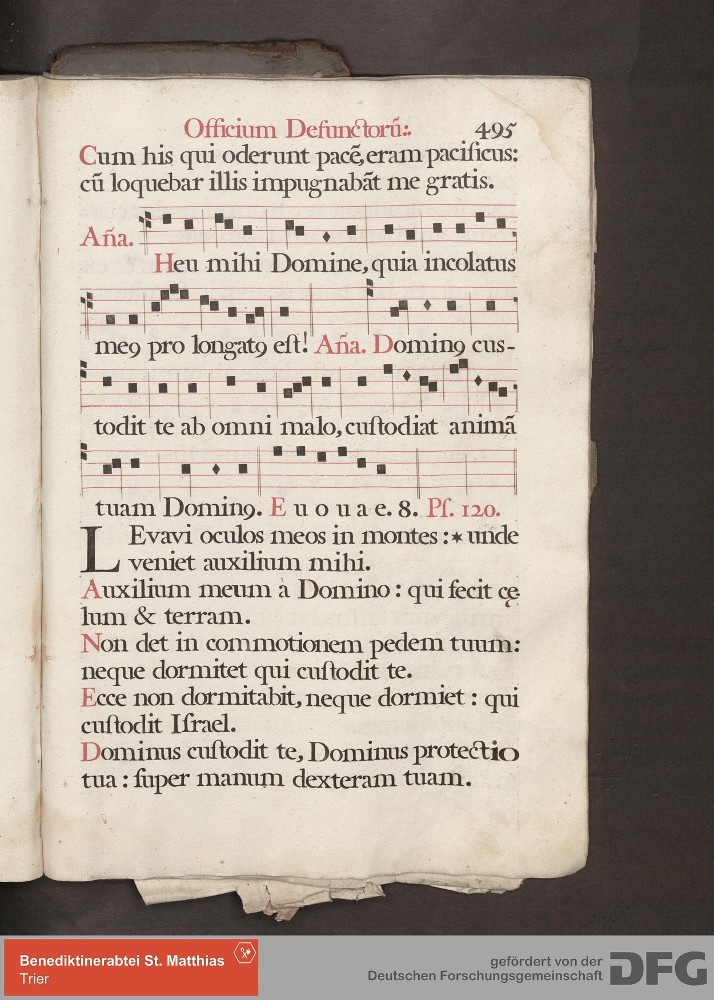 Officium Defunctorū:. 495
Cum his qui oderunt pacē, eram pacificus:
cū loquebar illis impugnabāt me gratis.
Aña.
Heu mihi Domine, quia incolatus
meꝯ pro longatꝯ eſt! Aña. Dominꝯ cus-
todit te ab omni malo, cuſtodiat animā
tuam Dominꝯ. E u o u a e. 8. Pſ. 120.
LEvavi oculos meos in montes: * unde
veniet auxilium mihi.
Auxilium meum à Domino: qui fecit cę
lum & terram.
Non det in commotionem pedem tuum:
neque dormitet qui cuſtodit te.
Ecce non dormitabit, neque dormiet: qui
cuſtodit Iſrael.
Dominus cuſtodit te, Dominus protectio
tua: ſuper manum dexteram tuam.
Benediktinerabtei St. Matthias
Trier
gefördert von der
Deutschen Forschungsgemeinschaft
DFG